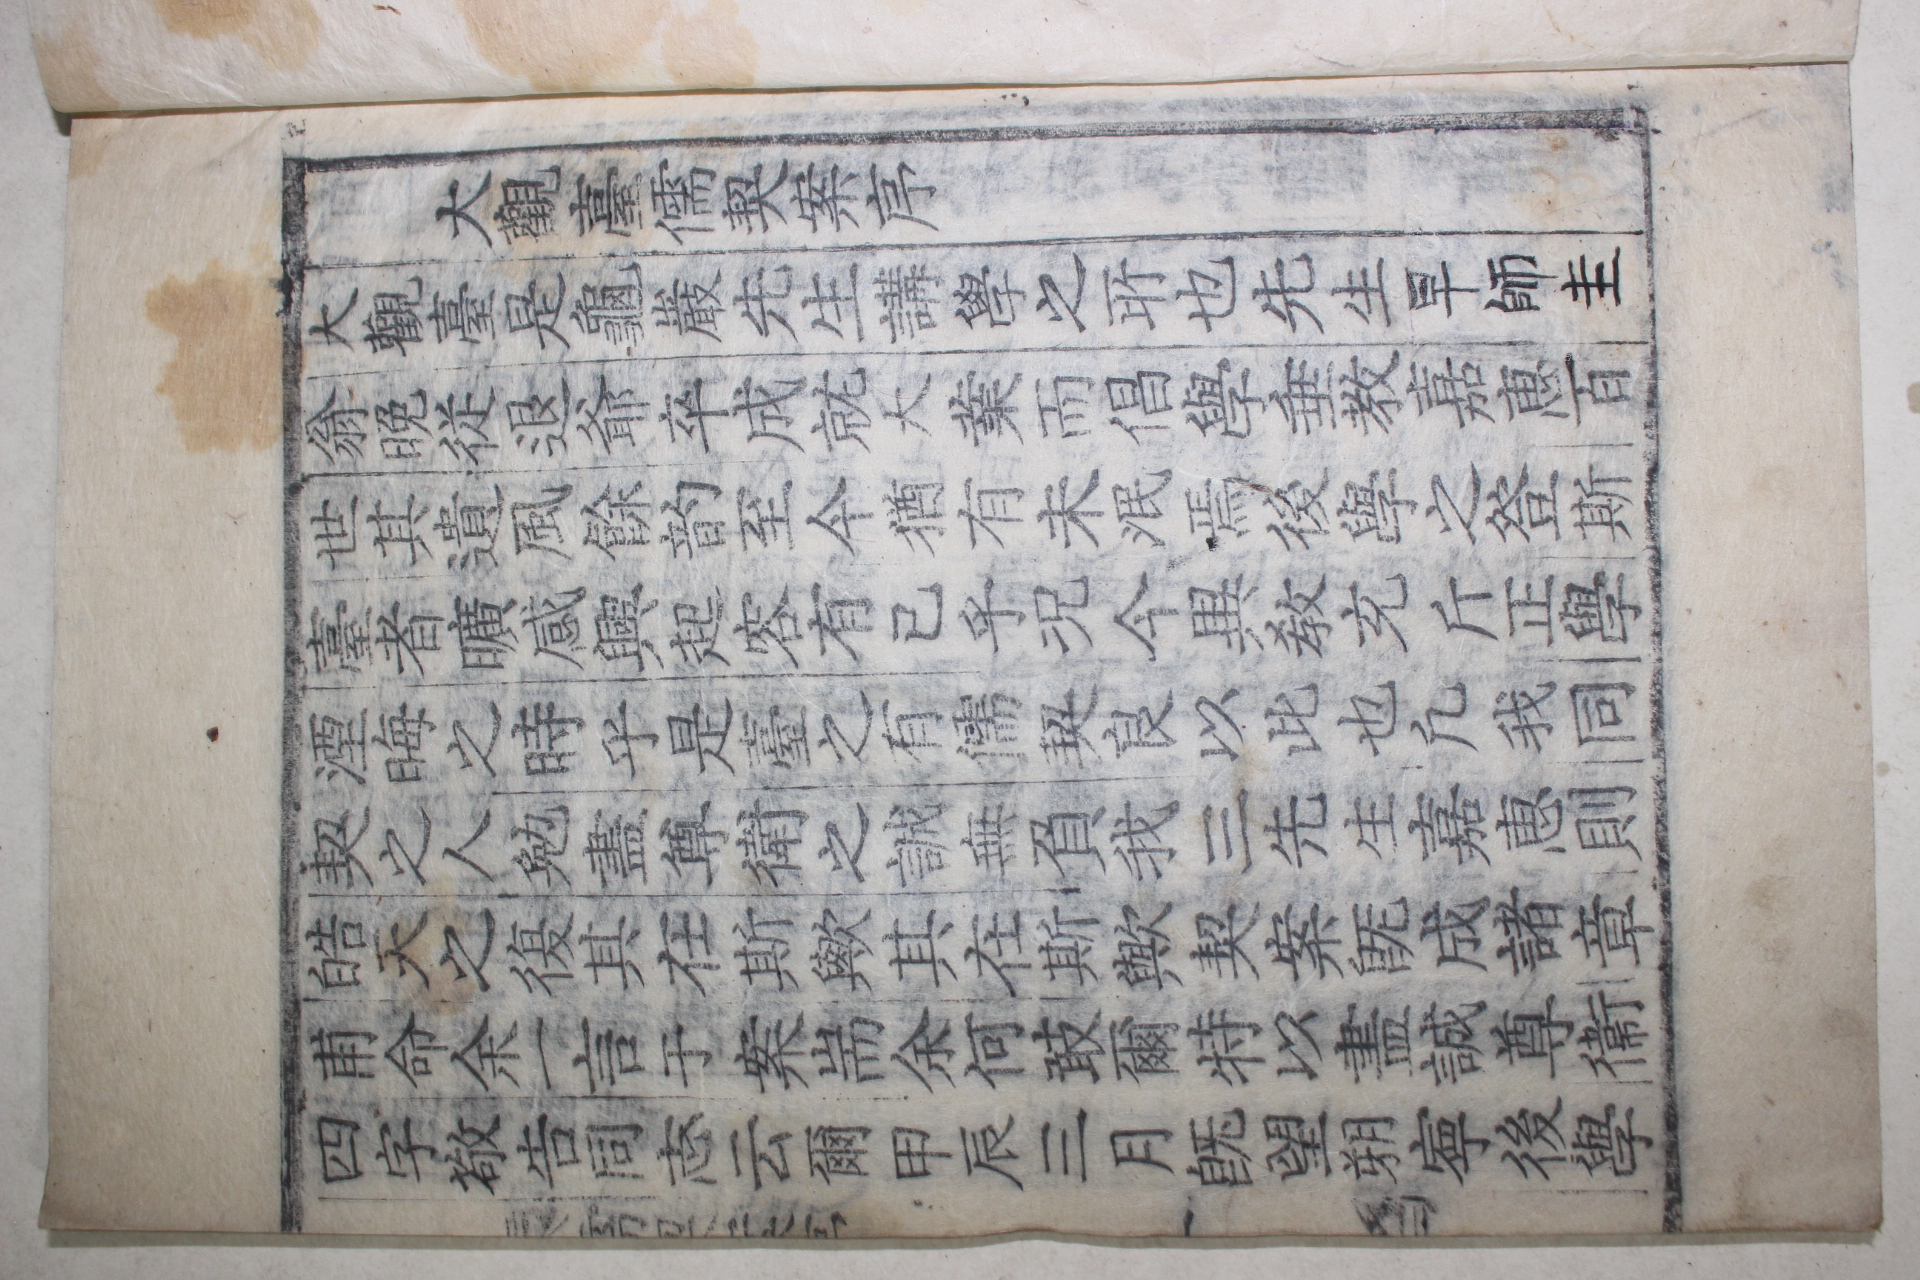 大觀臺儒契案序
大觀臺是龜巖先生講學之所也先生早師圭
翁晩從退爺卒成就大業而倡學垂敎嘉惠百
世其遺風餘韵至今猶有未泯焉後學之登斯
臺者曠感興起容有已乎况今異敎充斥正學
湮晦之時乎是臺之有儒契良以此也凢我同
契之人勉盡尊衛之誠無負我三先生嘉惠則
皓天之復其在斯歟其在斯歟契案旣成諸章
甫命余一言于案耑余何敢爾特以盡誠尊衛
四字敬告同志云爾甲辰三月旣望朔寧後學